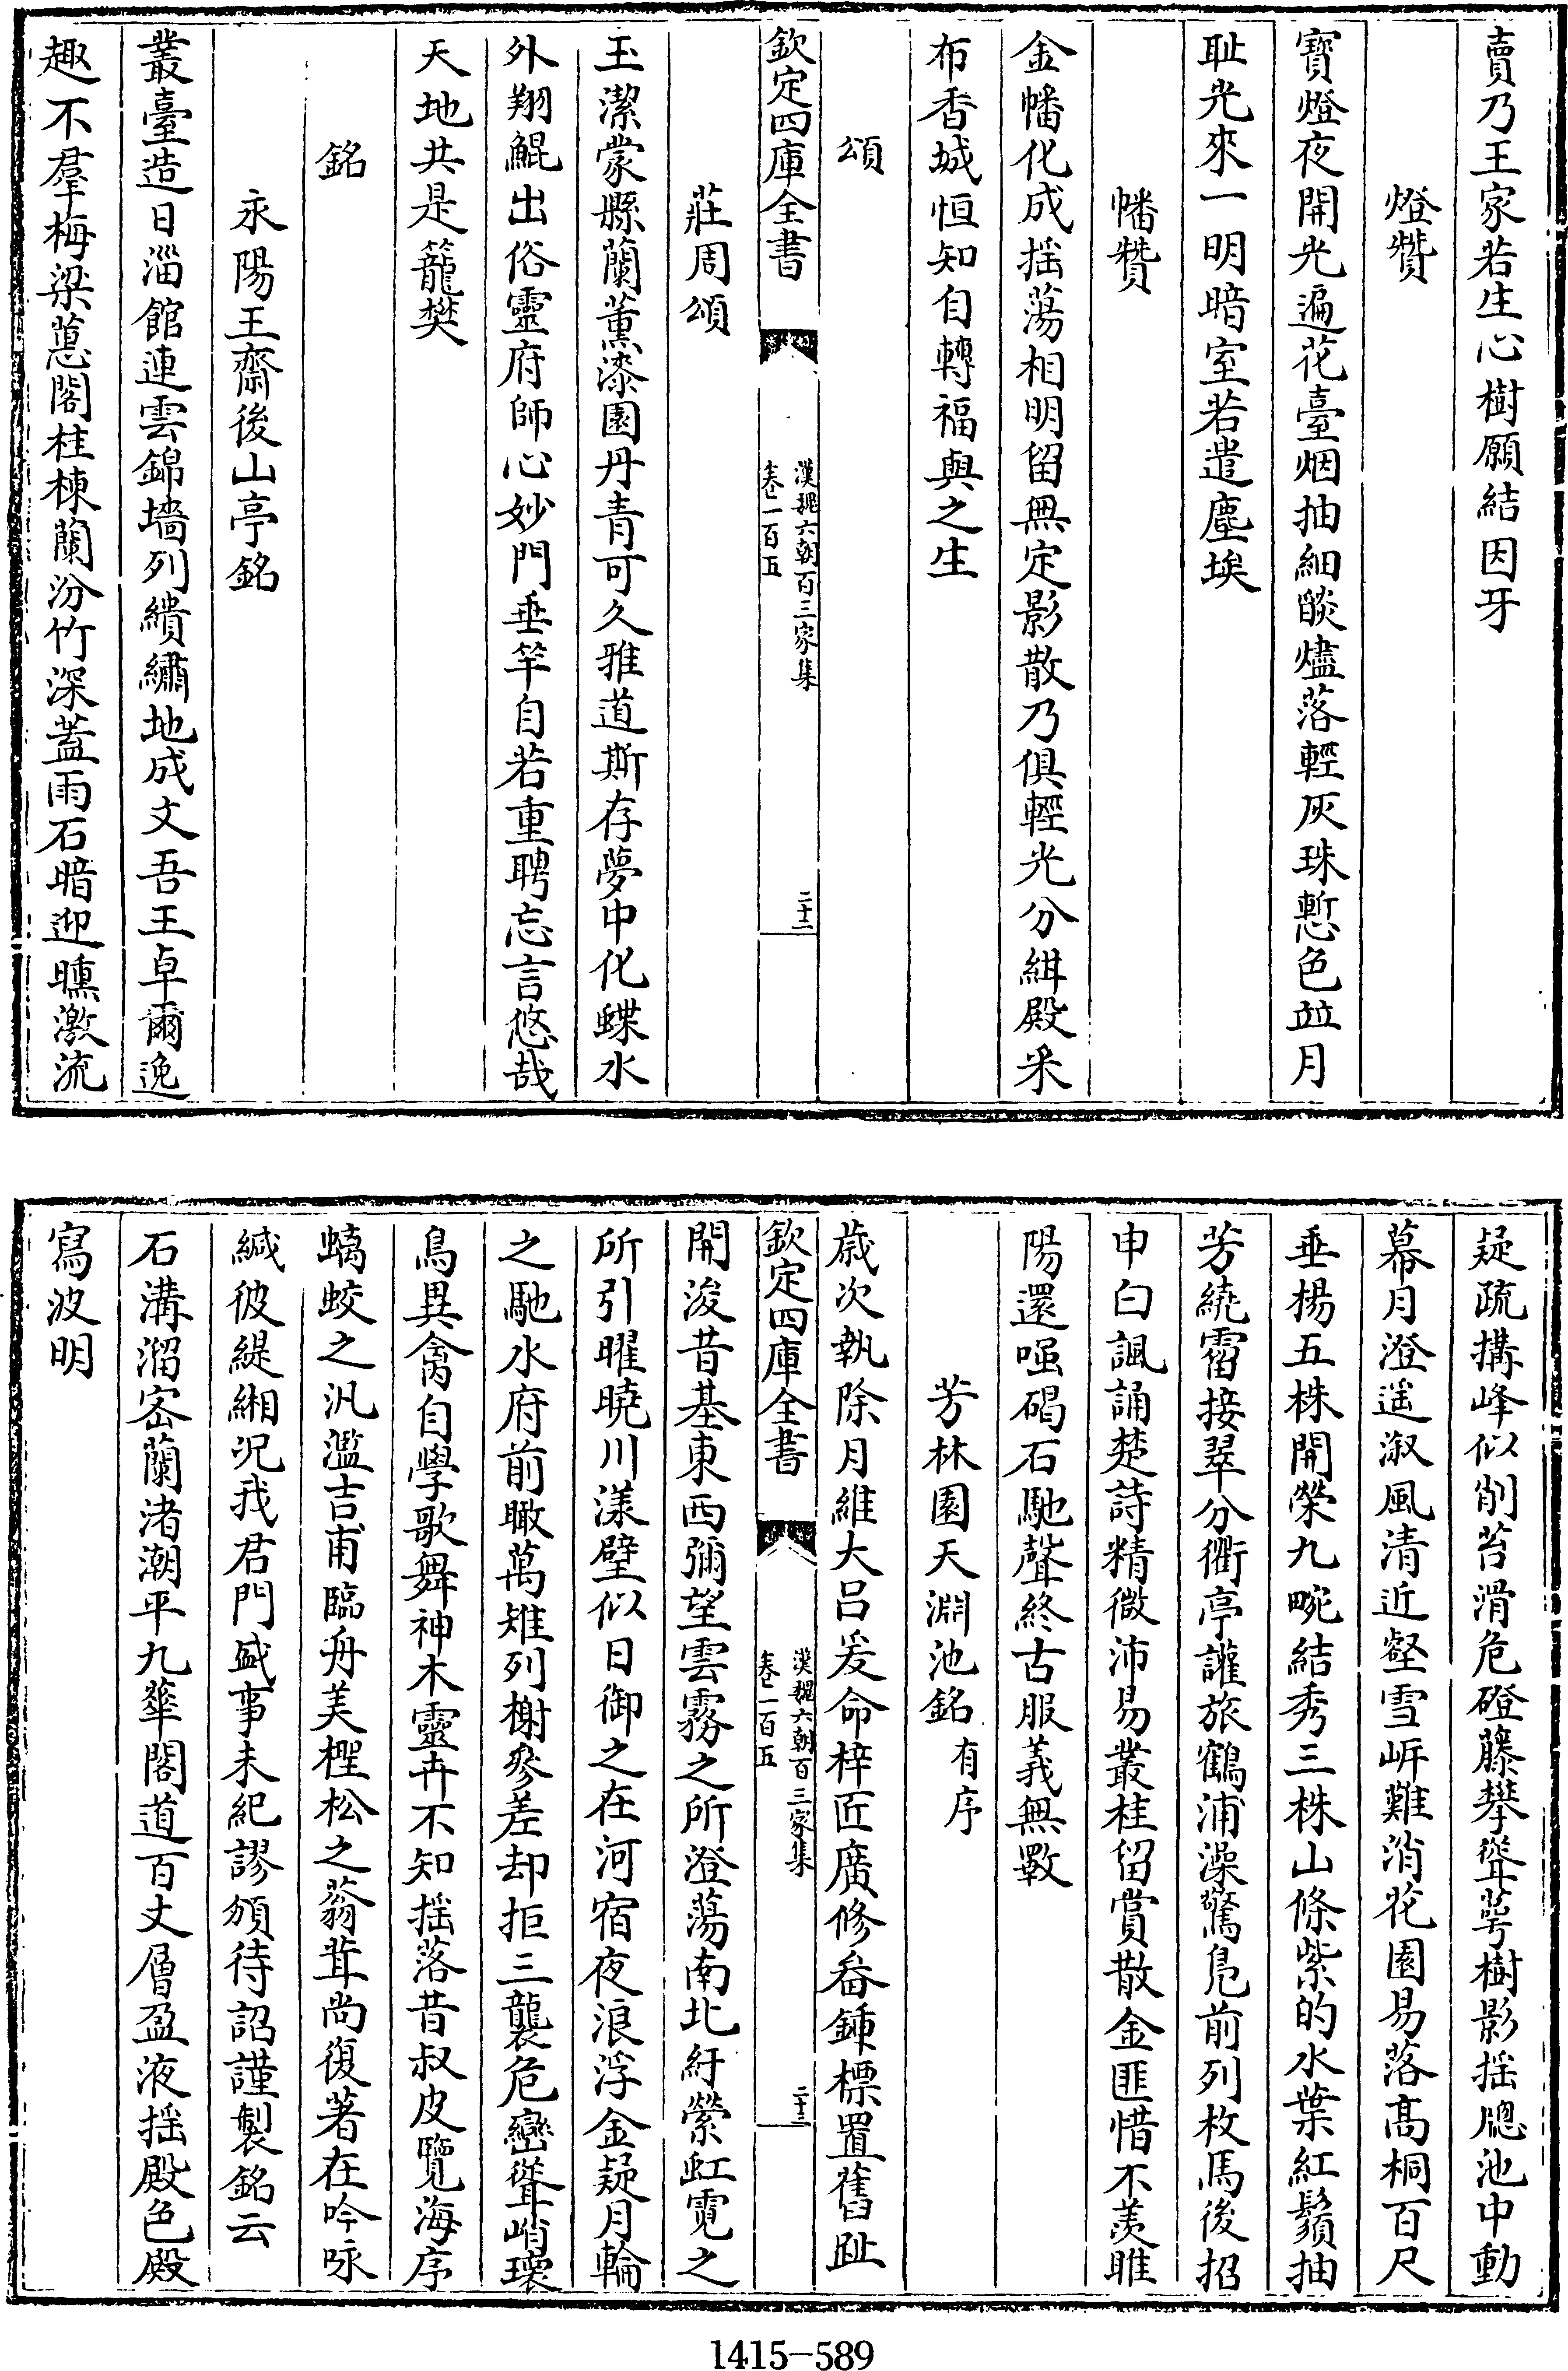 賣乃王家若生心樹願結因牙
燈贊
寶燈夜開光遍花臺烟抽細燄燼落輕灰珠慙色並月
耻光來一明暗室若遣塵埃
幡贊
金幡化成揺蕩相明留無定影散乃俱輕光分紺殿采
布香城恒知自轉福與之生
頌
欽定四庫全書
漢魏六朝百三家集
卷一百五
二十二
莊周頌
玉潔蒙縣蘭薰漆園丹青可久雅道斯存夢中化蝶水
外翔鯤出俗靈府師心妙門垂竿自若重聘忘言悠哉
天地共是籠樊
銘
永陽王齋後山亭銘
叢臺造日淄館連雲錦墻列繢繡地成文吾王卓爾逸
趣不羣梅梁蕙閣桂棟蘭汾竹深葢雨石暗迎曛激流
疑疏搆峰似削苔滑危磴藤攀聳萼樹影揺牕池中動
幕月澄遥淑風清近壑雪㟁難消花園易落髙桐百尺
垂楊五株開榮九畹結秀三株山條紫的水葉紅鬚抽
芳繞霤接翠分衢亭讙旅鶴浦澡驚鳬前列枚馬後招
申白諷誦楚詩精微沛易叢桂留賞散金匪惜不羨睢
陽還嗤碣石馳聲終古服義無斁
芳林園天淵池銘有序
歲次執除月維大呂爰命梓匠廣修畚鍤標置舊趾
欽定四庫全書
漢魏六朝百三家集
卷一百五
二十三
開浚昔基東西彌望雲霧之所澄蕩南北紆縈虹霓之
所引曜曉川漾璧似日御之在河宿夜浪浮金疑月輪
之馳水府前瞰萬雉列榭參差却拒三襲危巒聳峭瓌
鳥異禽自學歌舞神木靈卉不知揺落昔叔皮覽海序
螭蛟之汎濫吉甫臨舟美檉松之蓊茸尚復著在吟咏
緘彼緹緗況我君門盛事未紀謬頒待詔謹製銘云
石溝溜密蘭渚潮平九華閣道百丈層盈液揺殿色殿
寫波明
1415-589